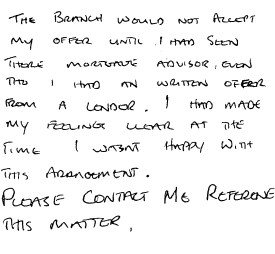 THE BRANCH WOULD NOT ACCEPT
MY OFFER UNTIL I HAD SEEN
THERE MORTGAGE ADVISOR, EVEN
THO I HAD AN WRITTEN OFFER
FROM A LENDOR. I HAD MADE
MY FEELINGS CLEAR AT THE
TIME I WASNT HAPPY WITH
THIS ARANGEMENT.
PLEASE CONTACT ME REFERENE
THIS MATTER.